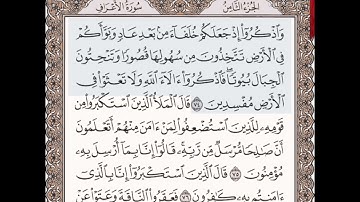 الجزء الثامن سورة الأعراف
وَاذْكُرُوا إِذْ جَعَلَكُمْ خُلَفَاءَ مِنْ بَعْدِ عَادٍ وَبَوَّأَكُمْ
فِي الْأَرْضِ تَتَّخِذُونَ مِنْ سُهُولِهَا قُصُورًا وَتَنْحِتُونَ
الْجِبَالَ بُيُوتًا فَاذْكُرُوا آلَاءَ اللَّهِ وَلَا تَعْثَوْا فِي
الْأَرْضِ مُفْسِدِينَ ٧٤ قَالَ الْمَلَأُ الَّذِينَ اسْتَكْبَرُوا مِنْ
قَوْمِهِ لِلَّذِينَ اسْتُضْعِفُوا لِمَنْ آمَنَ مِنْهُمْ أَتَعْلَمُونَ
أَنَّ صَالِحًا مُرْسَلٌ مِنْ رَبِّهِ قَالُوا إِنَّا بِمَا أُرْسِلَ بِهِ
مُؤْمِنُونَ ٧٥ قَالَ الَّذِينَ اسْتَكْبَرُوا إِنَّا بِالَّذِي
آمَنْتُمْ بِهِ كَافِرُونَ ٧٦ فَعَقَرُوا النَّاقَةَ وَعَتَوْا عَنْ